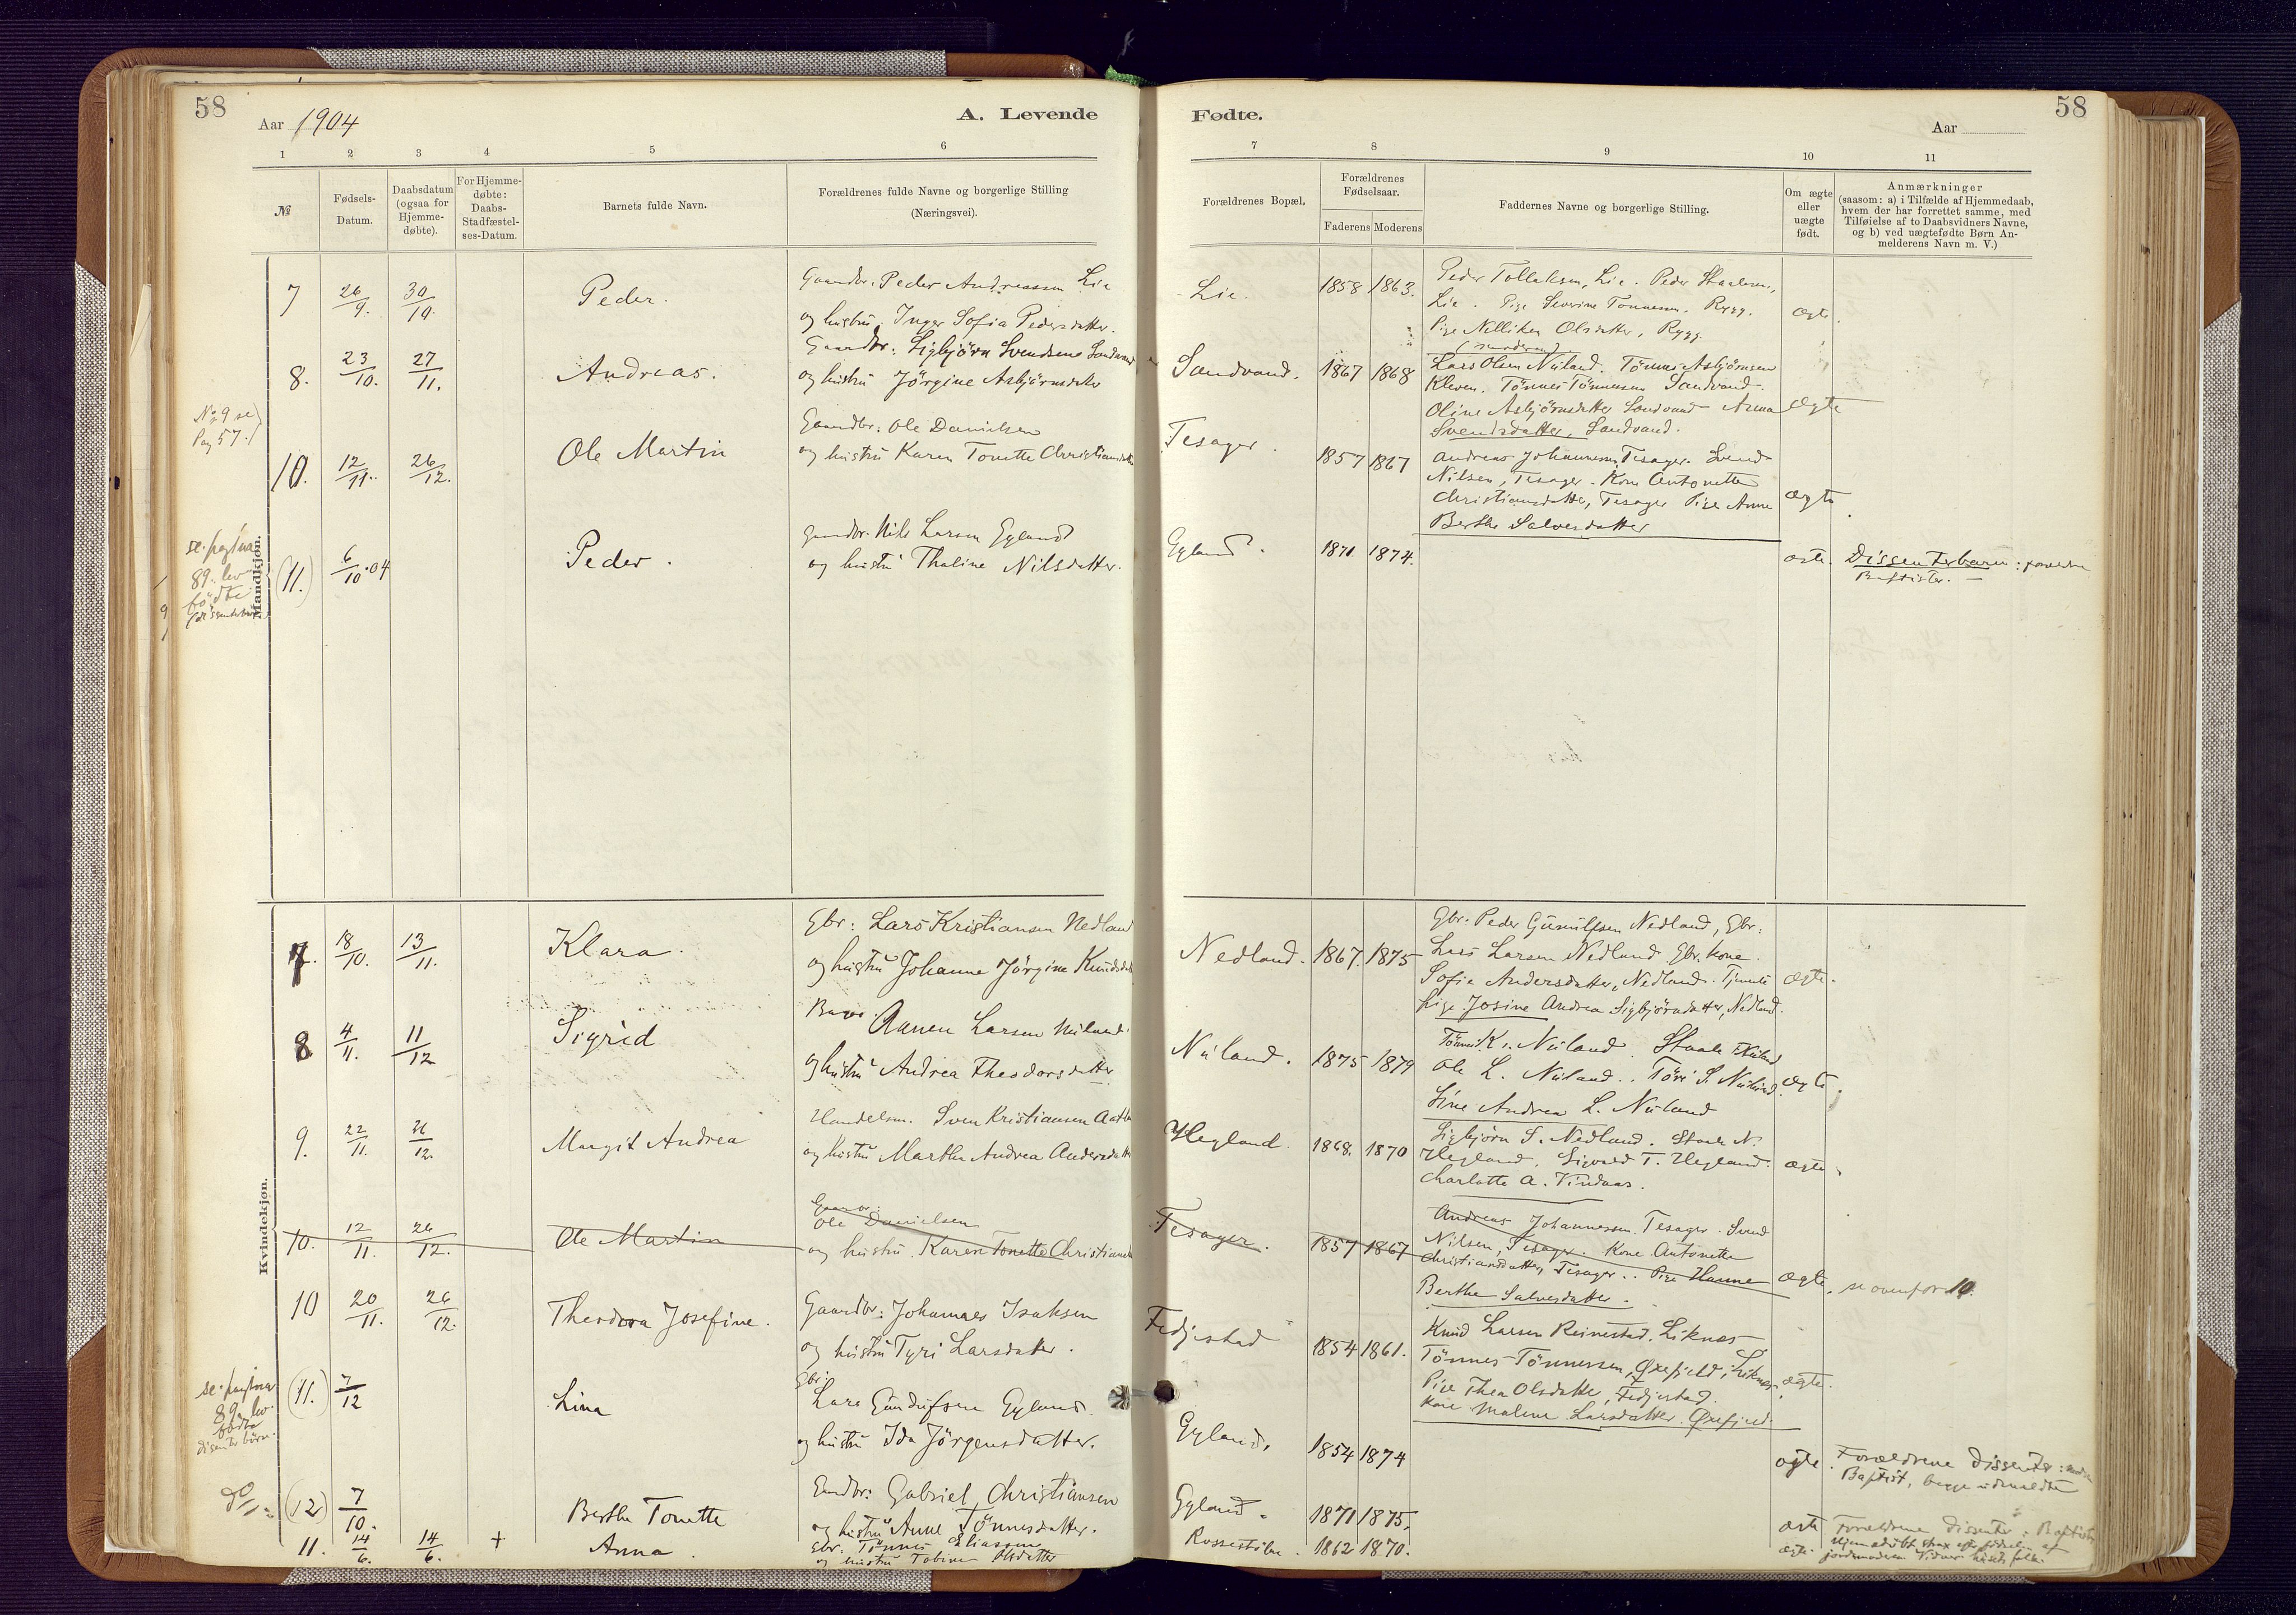 58
Aar 1904
A. Levende
1 2 3 4 5 6
№
Fødsels-
Datum.
Daabsdatum
(ogsaa for
Hjemme-
døbte).
For Hjemme-
døbte:
Daabs-
Stadfæstel-
ses-Datum.
Barnets fulde Navn.
Forældrenes fulde Navne og borgerlige Stilling
(Næringsvei).
Mandkjøn.
7 26/9. 30/10. Peder.
Gaardbr. Peder Andreassen Lie
og hustru Inger Sofia Pedersdatter.
8. 23/10. 27/11. Andreas.
Gaardbr: Sigbjørn Svendsen Sandvand
og hustru Jörgine Asbjörnsdatter
No 9 se
Pag 57.
10. 12/11. 26/12. Ole Martin
Gaardbr: Ole Danielsen
og hustru Karen Tonette Christiansdatter
se pagina
89. lev
födte
(11.) 6/10.04 Peder.
Gaardbr. Nils Larsen Egland
og hustru Thaline Nilsdatter.
Kvindekjøn.
7. 18/10. 13/11. Klara.
Gbr: Lars Kristiansen Nedland
og hustru Johanne Jörgine Knudsdatter
8 4/11. 11/12 Sigrid
Aanen Larsen Nuland
og hustru Andrea Theodorsdatter
9. 22/11. 26/12. Margit Andrea
Handelsm. Sven Kristiansen
og hustru Marthe Andrea Andersdatter
10. 12/11. 26/12. Ole Martin
Gaardbr:
Ole Danielsen
og hustru Karen Tonette Christiansdatter
10 20/11. 26/12. Theodora Josefine.
Gaardbr: Johannes Isaksen
og hustru Tyri Larsdatter.
se pagina
89. lev.
födte
disenter börn.
(11.) 7/12 Lina
Gbr:
Lars Gundufsen Egland
og hustru Ida Jörgensdatter.
(12) 7/10. Berthe Tonette
Gaardbr: Gabriel Christiansen
og hustru Anne Tönnesdatter.
11. 14/6. 14/6. + Anna.
Gbr. Tönnes Eliassen
og hustru Tobine Olsdatter
58
Fødte.
Aar
7 8 9 10 11
Forældrenes Bopæl.
Forældrenes
Fødselsaar.
Faderens Moderens
Faddernes Navne og borgerlige Stilling.
Om ægte
eller
uægte
født.
Anmærkninger
(saasom: a) i Tilfælde af Hjemmedaab,
hvem der har forrettet samme, med
Tilføielse af to Daabsvidners Navne,
og b) ved uægtefødte Børn An-
melderens Navn m. V.)
Lie. 1858 1863.
Peder Tollaksen, Lie. Peder Staalesen,
Lie. Pige Severine Tönnesen, Rygg.
Pige Nilliken Olsdatter, Rygg.
ægte.
Sandvand. 1867 1868
Lars Olsen Nuland. Tönnes Asbjörnsen
Kleven. Tönnes Tönnesen Sandvand.
Oline Asbjörnsdatter Sandvand Anna
Svendsdatter, Sandvand.
ægte
Tesager. 1857 1867
Andreas Johannesen, Tesager. Svend
Nilsen, Tesager. Kone Antonette
Christiansdatter, Tesager Pige Anne
Berthe Salvesdatter
ægte
Egland. 1871. 1874.
ægte. Dissenterbarn: foreldre
Baptister. —
Nedland. 1867. 1875
Gbr. Peder Gunulfsen Nedland, Gbr.
Lars Larsen Nedland Gbr. kone
Sofie Andersdatter, Nedland. Tjeneste
pige Josine Andrea Sigbjörnsdatter, Nedland.
ægte.
Nuland. 1875 1879
Tönnes K. Nuland. Staale Nuland
Ole L. Nuland. Töri S. Nuland
Sine Andrea L. Nuland
ægte.
Hegland. 1868. 1870
Sigbjörn S. Nedland. Staale N.
Hegland. Sigvald T. Hegland.
Charlotte A. Tindaas.
ægte.
Tesager. 1857 1867
Andreas Johannessen Tesager. Svend
Nilsen, Tesager. Kone Antonette
Christiansdatter, Tesager.. Pige Hanne
Berthe Salvesdatter.
ægte. se ovenfor 10.
Fedjestad 1854 1861.
Knud Larsen Reinestad. Liknes
Tönnes Tönnessen, Øxefjeld, Liknes,
Pige Thea Olsdatter, Fedjestad.
Kone Malene Larsdatter. Øxefjeld.
ægte.
Egland. 1854 1874
ægte. Forældrene Dissenter:
Baptist, begge udmeldte
Egland. 1871 1875.
ægte Foreldrene dissenter: Baptister
Rossestölen. 1862 1870.
ægte. Hjemmedöbt strax efter födselen af
jordmoderen